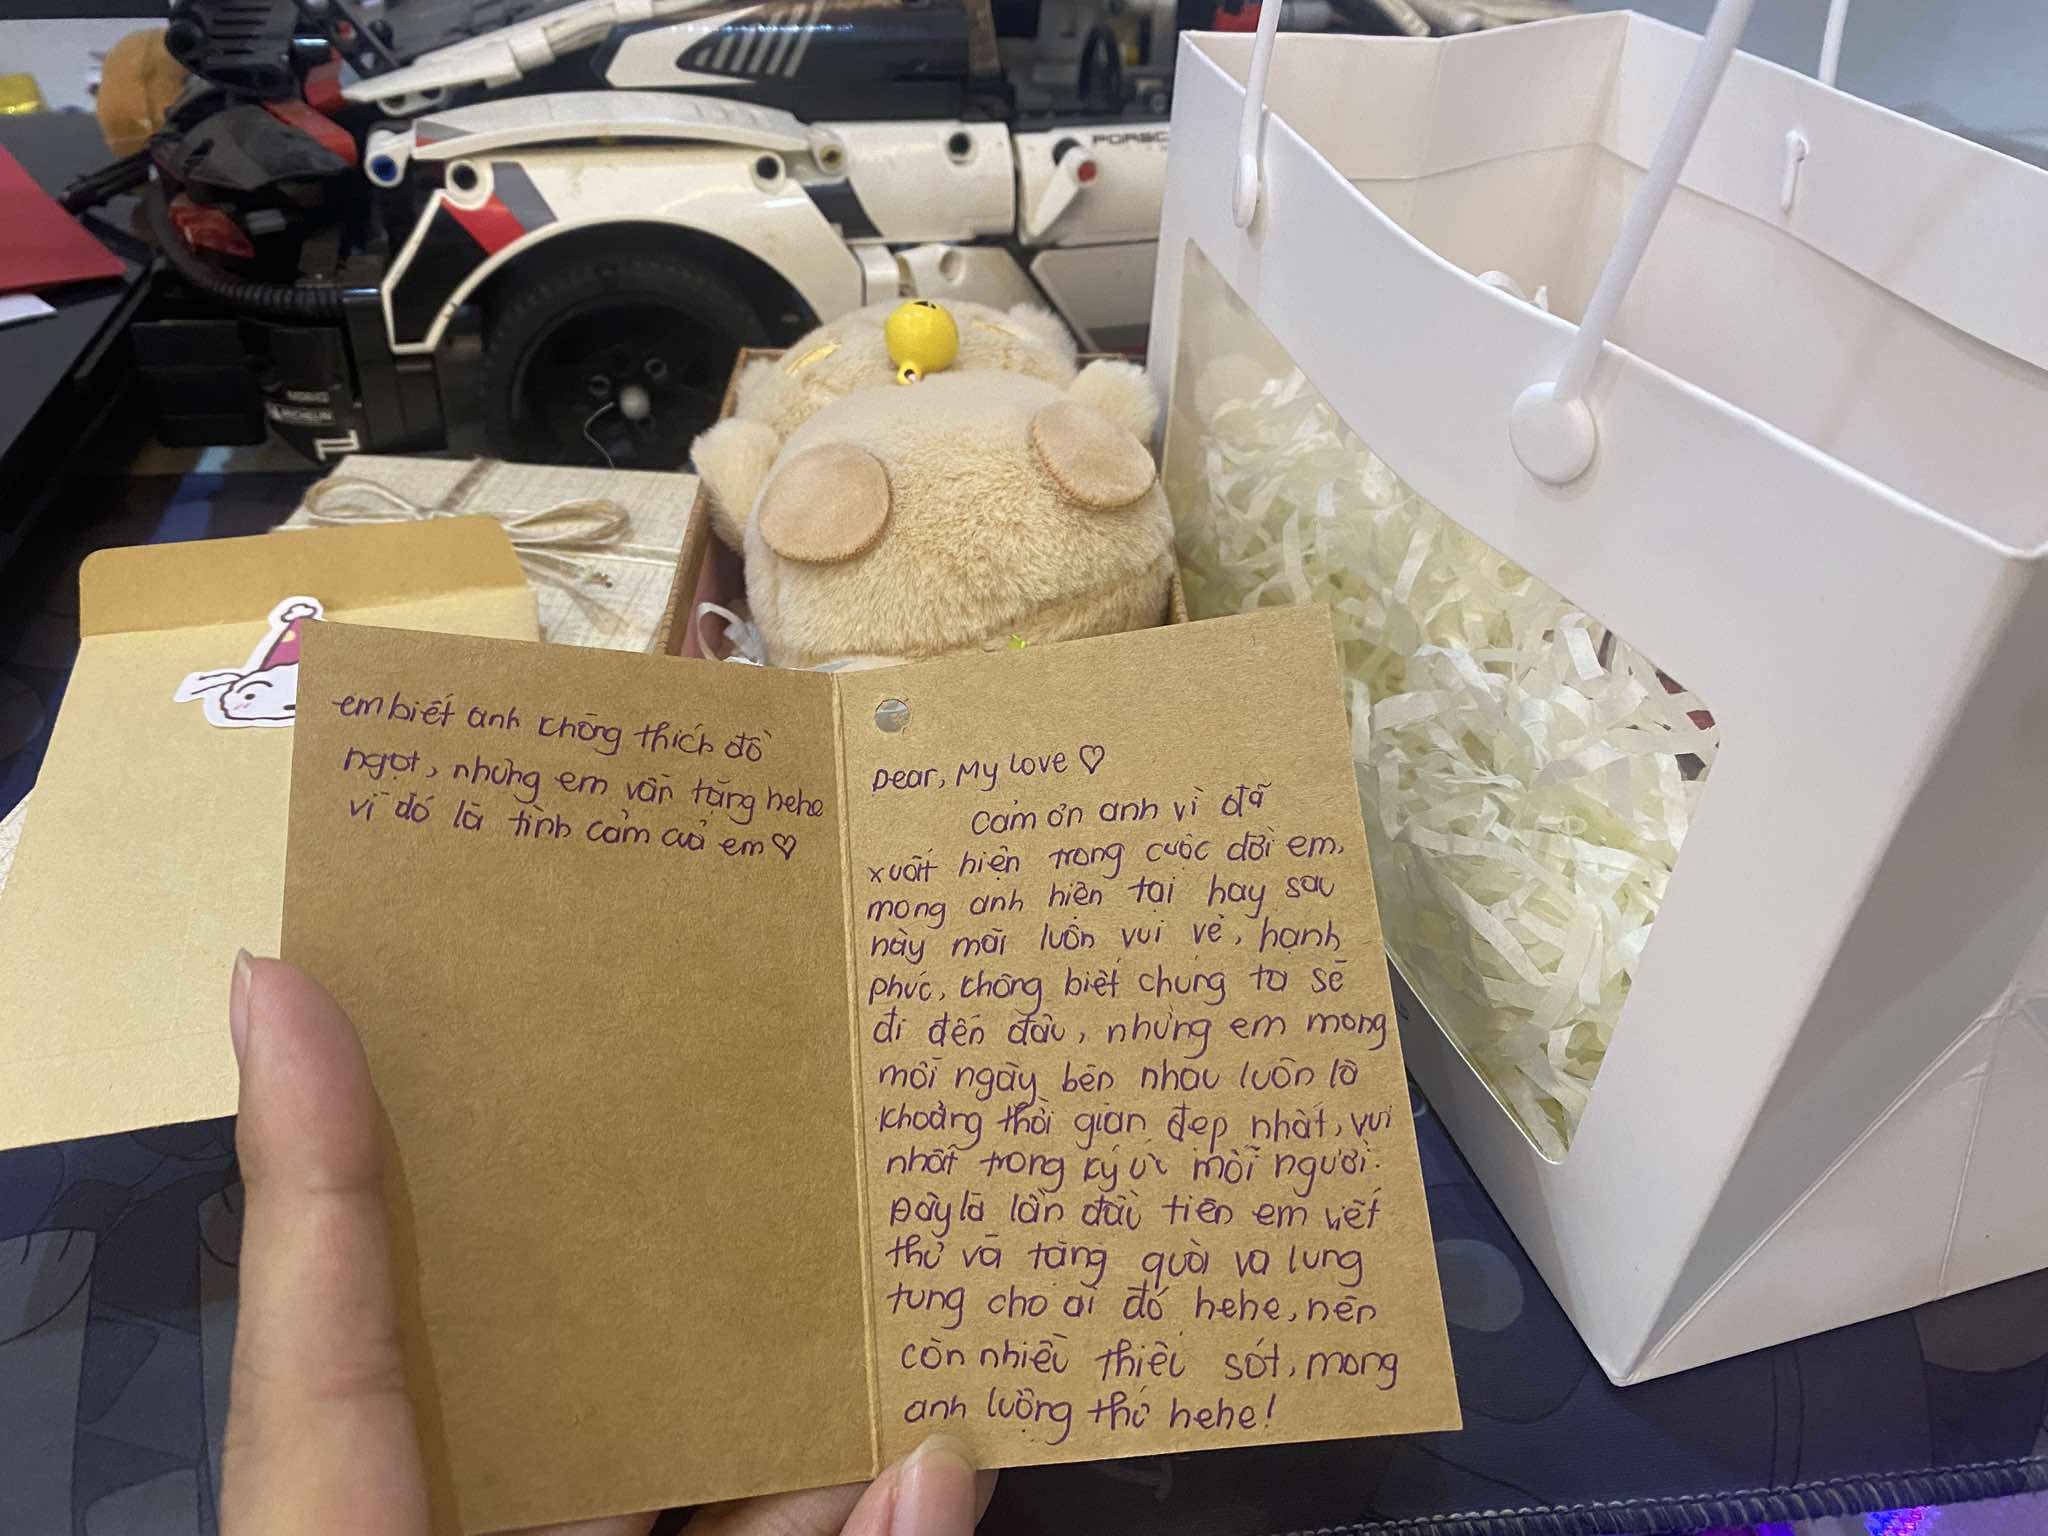 PORSC
MICHELIN
em biết anh không thích đồ
ngọt, nhưng em vẫn tặng hehe
vì đó là tình cảm của em ♡
Dear, My love ♡
Cảm ơn anh vì đã
xuất hiện trong cuộc đời em,
mong anh hiện tại hay sau
này mãi luôn vui vẻ, hạnh
phúc, không biết chúng ta sẽ
đi đến đâu, nhưng em mong
mỗi ngày bên nhau luôn là
khoảng thời gian đẹp nhất, vui
nhất trong ký ức mỗi người.
Đây là lần đầu tiên em viết
thư và tặng quà và lung
tung cho ai đó hehe, nên
còn nhiều thiếu sót, mong
anh lượng thứ hehe!